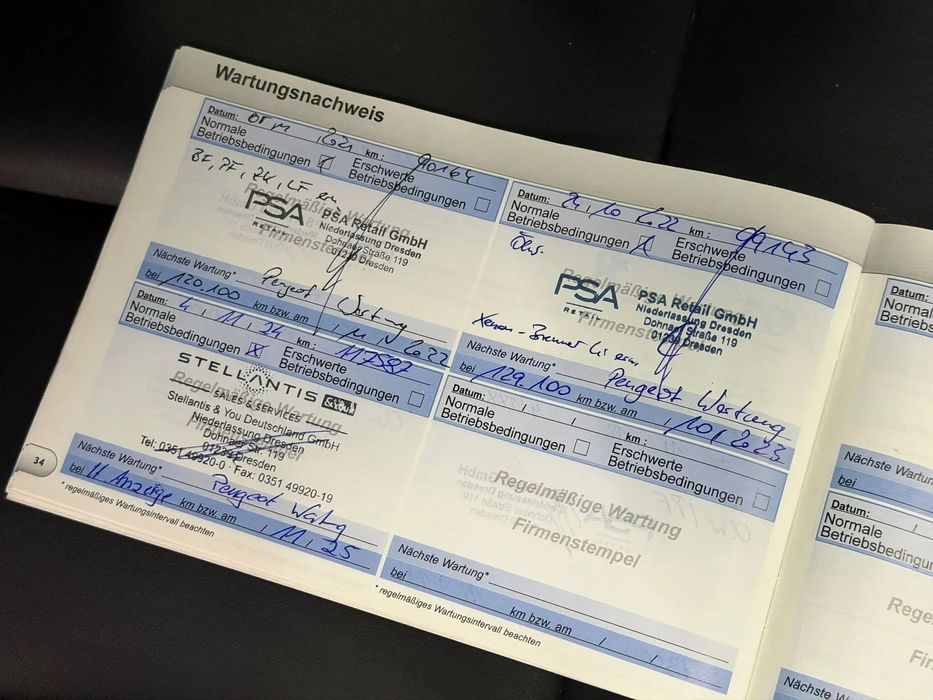 Wartungsnachweis
Datum: 2021 km: 90164
Normale Betriebsbedingungen Erschwerte Betriebsbedingungen
BF, PF,
Regelmäßige Wartung
Firmenstempel
PSA RETAIL
PSA Retail GmbH
Niederlassung Dresden
Dohnaer Straße 119
01239 Dresden
Nächste Wartung* Peugeot Wartung
bei 120.100 km bzw. am / 2022
Datum: 10 2022 km: 99143
Normale Betriebsbedingungen Erschwerte Betriebsbedingungen
Regelmäßige Wartung
Firmenstempel
PSA RETAIL
PSA Retail GmbH
Niederlassung Dresden
Dohnaer Straße 119
01239 Dresden
Xenon-Brenner
Nächste Wartung* Peugeot Wartung
bei 129.100 km bzw. am / 10 / 2023
Datum: 4, 11, 24 km: 117582
Normale Betriebsbedingungen Erschwerte Betriebsbedingungen
Regelmäßige Wartung
Firmenstempel
STELLANTIS &You
SALES & SERVICES
Stellantis & You Deutschland GmbH
Niederlassung Dresden
Dohnaer Str. 119
01239 Dresden
Tel: 0351 49920-0 · Fax: 0351 49920-19
Nächste Wartung* Peugeot Wartung
bei Anzeige km bzw. am / 11, 25
* regelmäßiges Wartungsintervall beachten
Datum: / / km:
Normale Betriebsbedingungen Erschwerte Betriebsbedingungen
Regelmäßige Wartung
Firmenstempel
Nächste Wartung*
bei km bzw. am / /
* regelmäßiges Wartungsintervall beachten
34
Datum:
Normale
Nächste Wartung
bei
Datum: /
Normale
Betriebsbedingun
Rege
Firm
Nächste Wartung